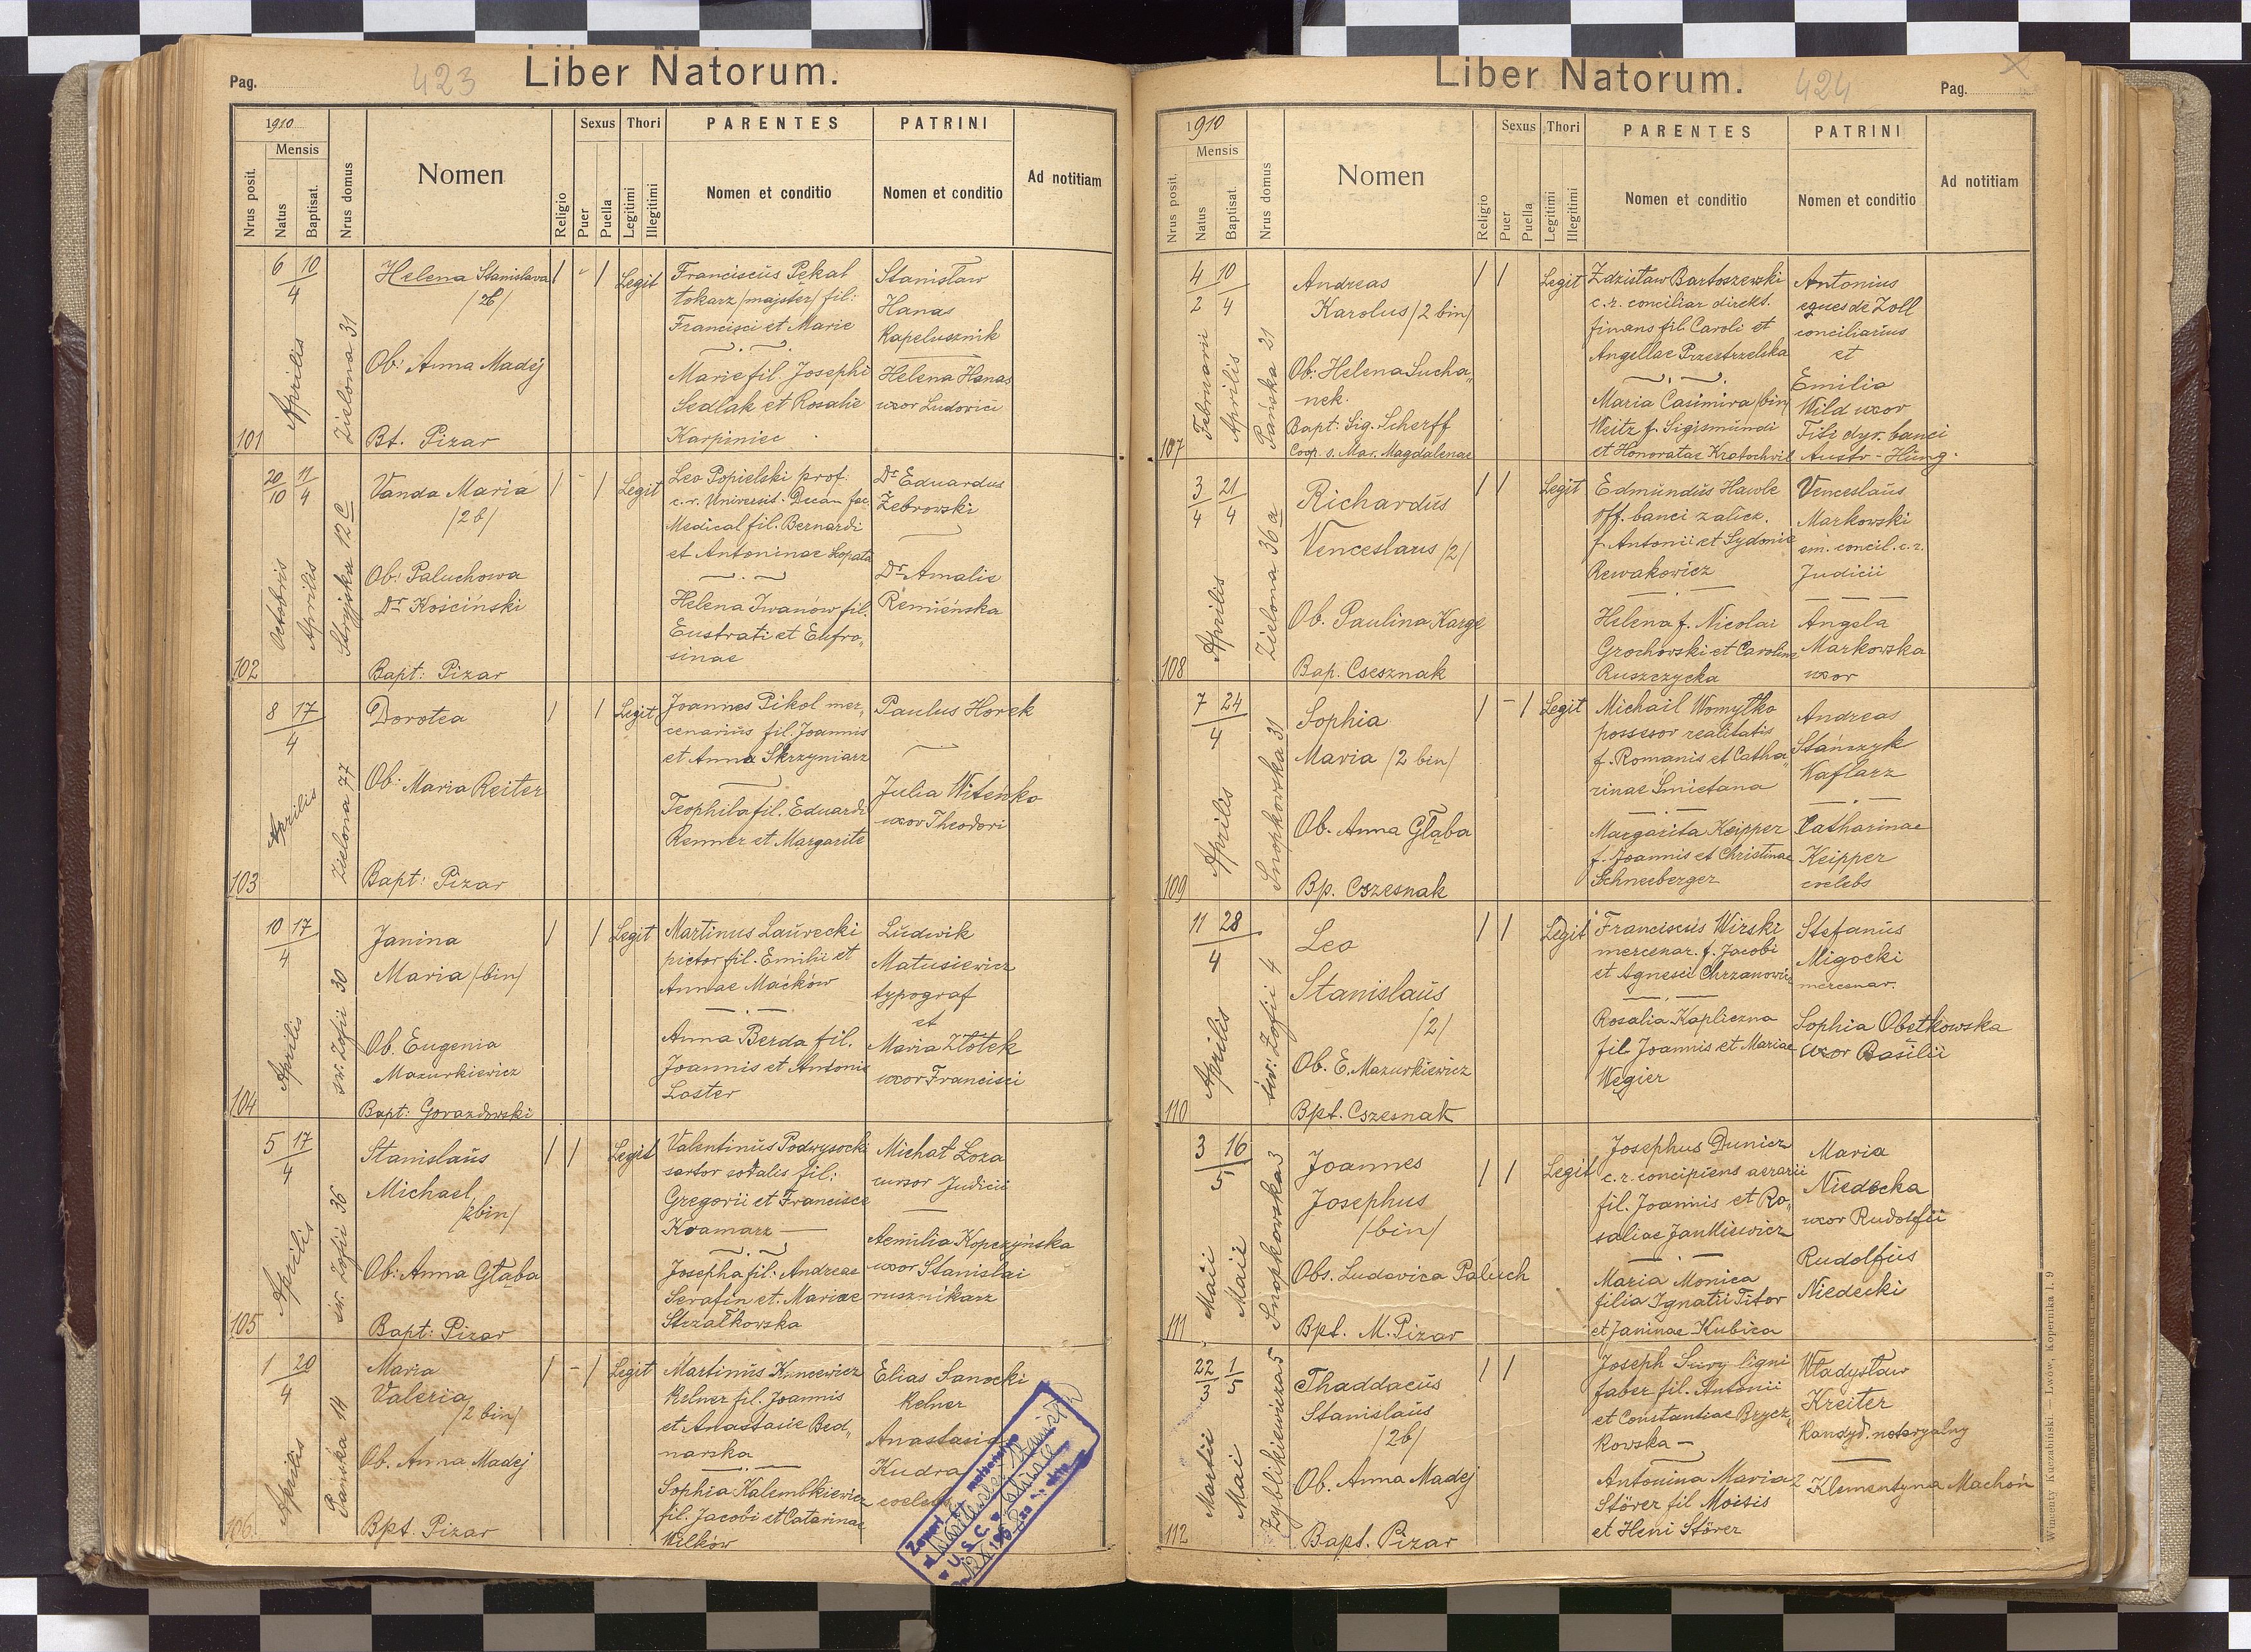 Pag.
423
Liber Natorum.
1910
Mensis
Nrus posit.
Natus
Baptisat.
Nrus domus
Nomen
Religio
Sexus
Puer
Puella
Thori
Legitimi
Illegitimi
PARENTES
Nomen et conditio
PATRINI
Nomen et conditio
Ad notitiam
101
6 10
4
Aprilis
Zielona 31
Helena Stanislava
/2b/
Ob: Anna Madej
Bt. Pizar
Legit
Franciscus Pękal
tokarz /majster/ fil:
Francisci et Marie
Marie fil. Josephi
Sedlak et Rosalie
Karpiniec
Stanisław
Hanas
Kapelusznik
Helena Hanas
uxor Ludovici
102
20 11
10 4
Octobris
Aprilis
Stryjska 12 c
Vanda Maria
/2b/
Ob: Paluchowa
Dr Kościński
Bapt: Pizar
Legit
Leo Popielski prof.
c.r. Universit. Decan fac.
Medical fil. Bernardi
et Antoninae Łopata
Helena Iwanów fil.
Eustrati et Eufro„
sinae
Dr Eduardus
Żebrowski
Dr Amalie
Remieńska
103
8 17
4
Aprilis
Zielona 77
Dorotea
Ob: Maria Reiter
Bapt: Pizar
Legit
Joannes Pikol mer„
cenarius fil. Joannis
et Anna Skrzyniarz
Teophila fil. Eduardi
Renner et Margarite
Paulus Horek
Julia Witeńko
uxor Theodori
104
10 17
4
Aprilis
św. Zofii 30
Janina
Maria /bin/
Ob. Eugenia
Mazurkiewicz
Bapt: Gorazdowski
Legit
Martinus Laurecki
pictor fil. Emilii et
Annae Maćków
Anna Berda fil.
Joannis et Antonie
Loster
Ludwik
Matusiewicz
typograf
et
Maria Złotek
uxor Francisci
105
5 17
4
Aprilis
św. Zofii 36
Stanislaus
Michael
/2bin/
Ob: Anna Głąba
Bapt: Pizar
Legit
Valentinus Podwysocki
sartor sodalis fil:
Gregorii et Francisce
Kramarz
Josepha fil. Andreae
Serafin et. Mariae
Strzałkowska
Michał Łoza
cursor Judicii
Aemilia Kopczyńska
uxor Stanislai
rusznikarz
106
1 20
4
Aprilis
Pańska 14
Maria
Valeria
/2 bin/
Ob. Anna Madej
Bpt. Pizar
Legit
Martinus Kuncewicz
Kelner fil. Joannis
et Anastasie Bed„
narska
Sophia Kalembkiewicz
fil. Jacobi et Catarinae
Wilków
Elias Sanocki
Kelner
Anastasia
Kudra
coelebs
U. S. C.
Liber Natorum.
424
Pag.
1910
Mensis
Nrus posit.
Natus
Baptisat.
Nrus domus
Nomen
Religio
Sexus
Puer
Puella
Thori
Legitimi
Illegitimi
PARENTES
Nomen et conditio
PATRINI
Nomen et conditio
Ad notitiam
107
4 10
2 4
Februarii
Aprilis
Pańska 21
Andreas
Karolus /2 bin/
Ob: Helena Sucha„
nek.
Bapt: Sig. Scherff
Coop. s. Mar. Magdalenae
Legit
Zdzisław Bartoszewski
c.r. conciliar direkt.
finans fil. Caroli et
Angellae Przestrzelska
Maria Casimira /bin/
Weitz f. Sigismundi
et Honoratae Kratochvil
Antonius
eques de Zoll
conciliarius
et
Emilia
Wild uxor
Titi dyr. banci
Austr-Hung.
108
3 21
4 4
Aprilis
Zielona 36 a
Richardus
Venceslaus /2/
Ob. Paulina Karge
Bap. Csesznak
Legit
Edmundus Hawle
off. banci zalicz.
f. Antonii et Sydonie
Rewakowicz
Helena f. Nicolai
Grochowski et Caroline
Ruszczycka
Venceslaus
Markowski
em. concil. c.r.
Judicii
Angela
Markowska
uxor
109
7 24
4
Aprilis
Snopkowska 31
Sophia
Maria /2 bin/
Ob. Anna Głąba
Bp. Cszesnak
Legit
Michail Womytko
possesor realitatis
f. Romanis et Catha„
rinae Smietana
Margarita Keipper
f. Joannis et Christinae
Schneeberger
Andreas
Stańczyk
Kaflarz
Catharinae
Keipper
coelebs
110
11 28
4
Aprilis
św. Zofii 4
Leo
Stanislaus
/2/
Ob. E. Mazurkiewicz
Bpt. Cszesnak
Legit
Franciscus Wirski
mercenar. f. Jacobi
et Agnesci Chrzanowic
Rosalia Kapliczna
fil. Joannis et Mariae
Węgier
Stefanus
Migocki
mercenar.
Sophia Obetkowska
uxor Basilii
111
3 16
5
Maii
Maii
Snopkowska 3
Joannes
Josephus
/bin/
Obs. Ludovica Paluch
Bpt. M. Pizar
Legit
Josephus Dunicz
c.r. concipiens aerarii
fil. Joannis et Ro„
saliae Jankiewicz
Maria Monica
filia Ignatii Titor
et Janinae Kubica
Maria
Niedecka
uxor Rudolfii
Rudolfus
Niedecki
112
22 1
3 5
Martii
Mai
Zyblikiewicza 5
Thaddaeus
Stanislaus
/2b/
Ob. Anna Madej
Bapt. Pizar
Joseph Sury ligni
faber fil. Antonii
et Constantiae Brycz„
kowska
Antonina Maria 2
Störer fil Moisis
et Heni Störer
Władysław
Kreiter
Kandyd. notaryalny
Klementyna Machoń
Wincenty Kuczabiński. — Lwów, Kopernika l. 9